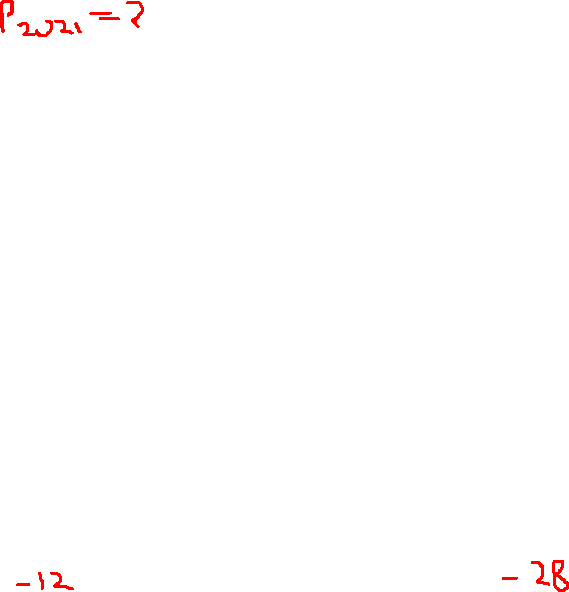 P2021=?
-12 -28